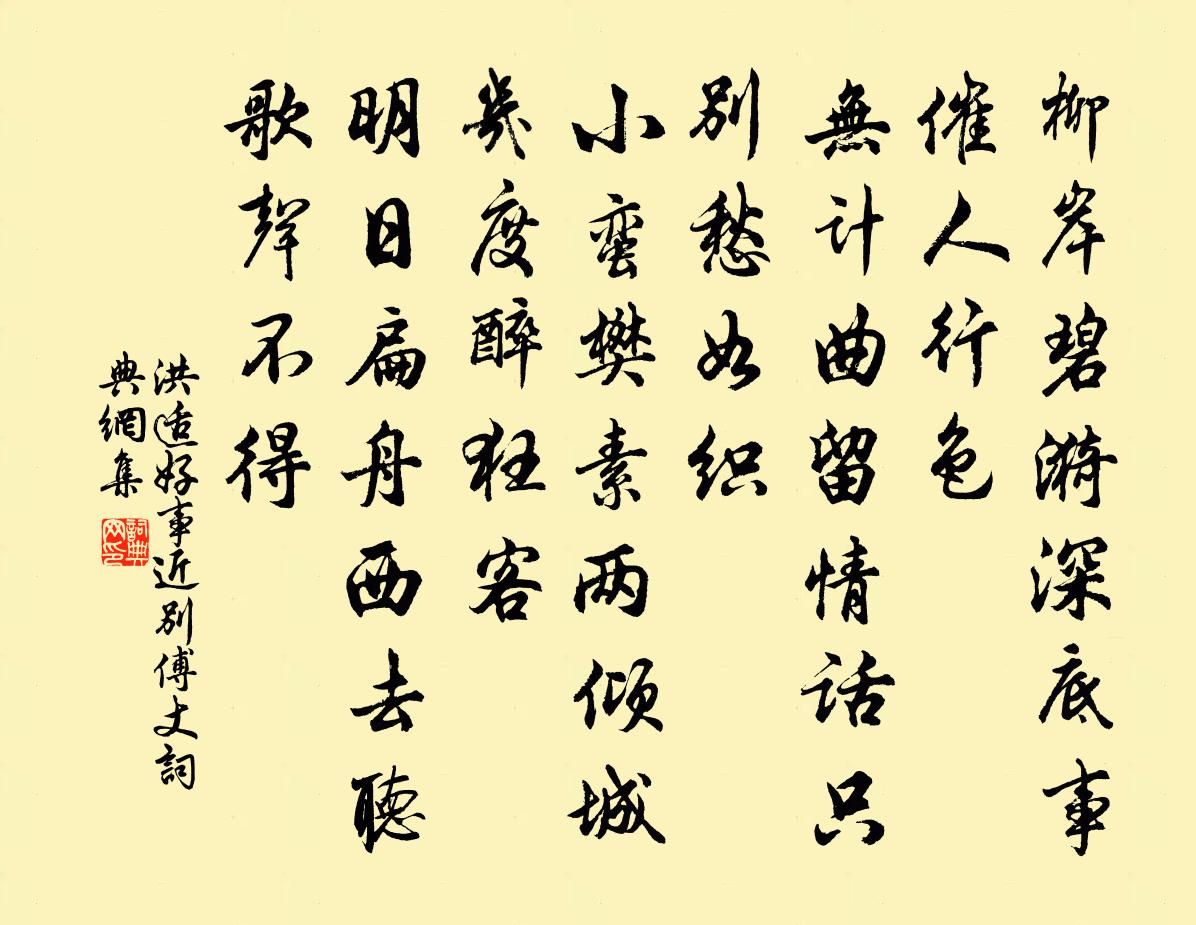 柳岸碧漪深底事
催人行色
無計曲留情話只
別愁如织
小蛮樊素两倾城
幾度醉狂客
明日扁舟西去聽
歌聲不得
洪适好事近别傅丈詞
典網集
詞典网印